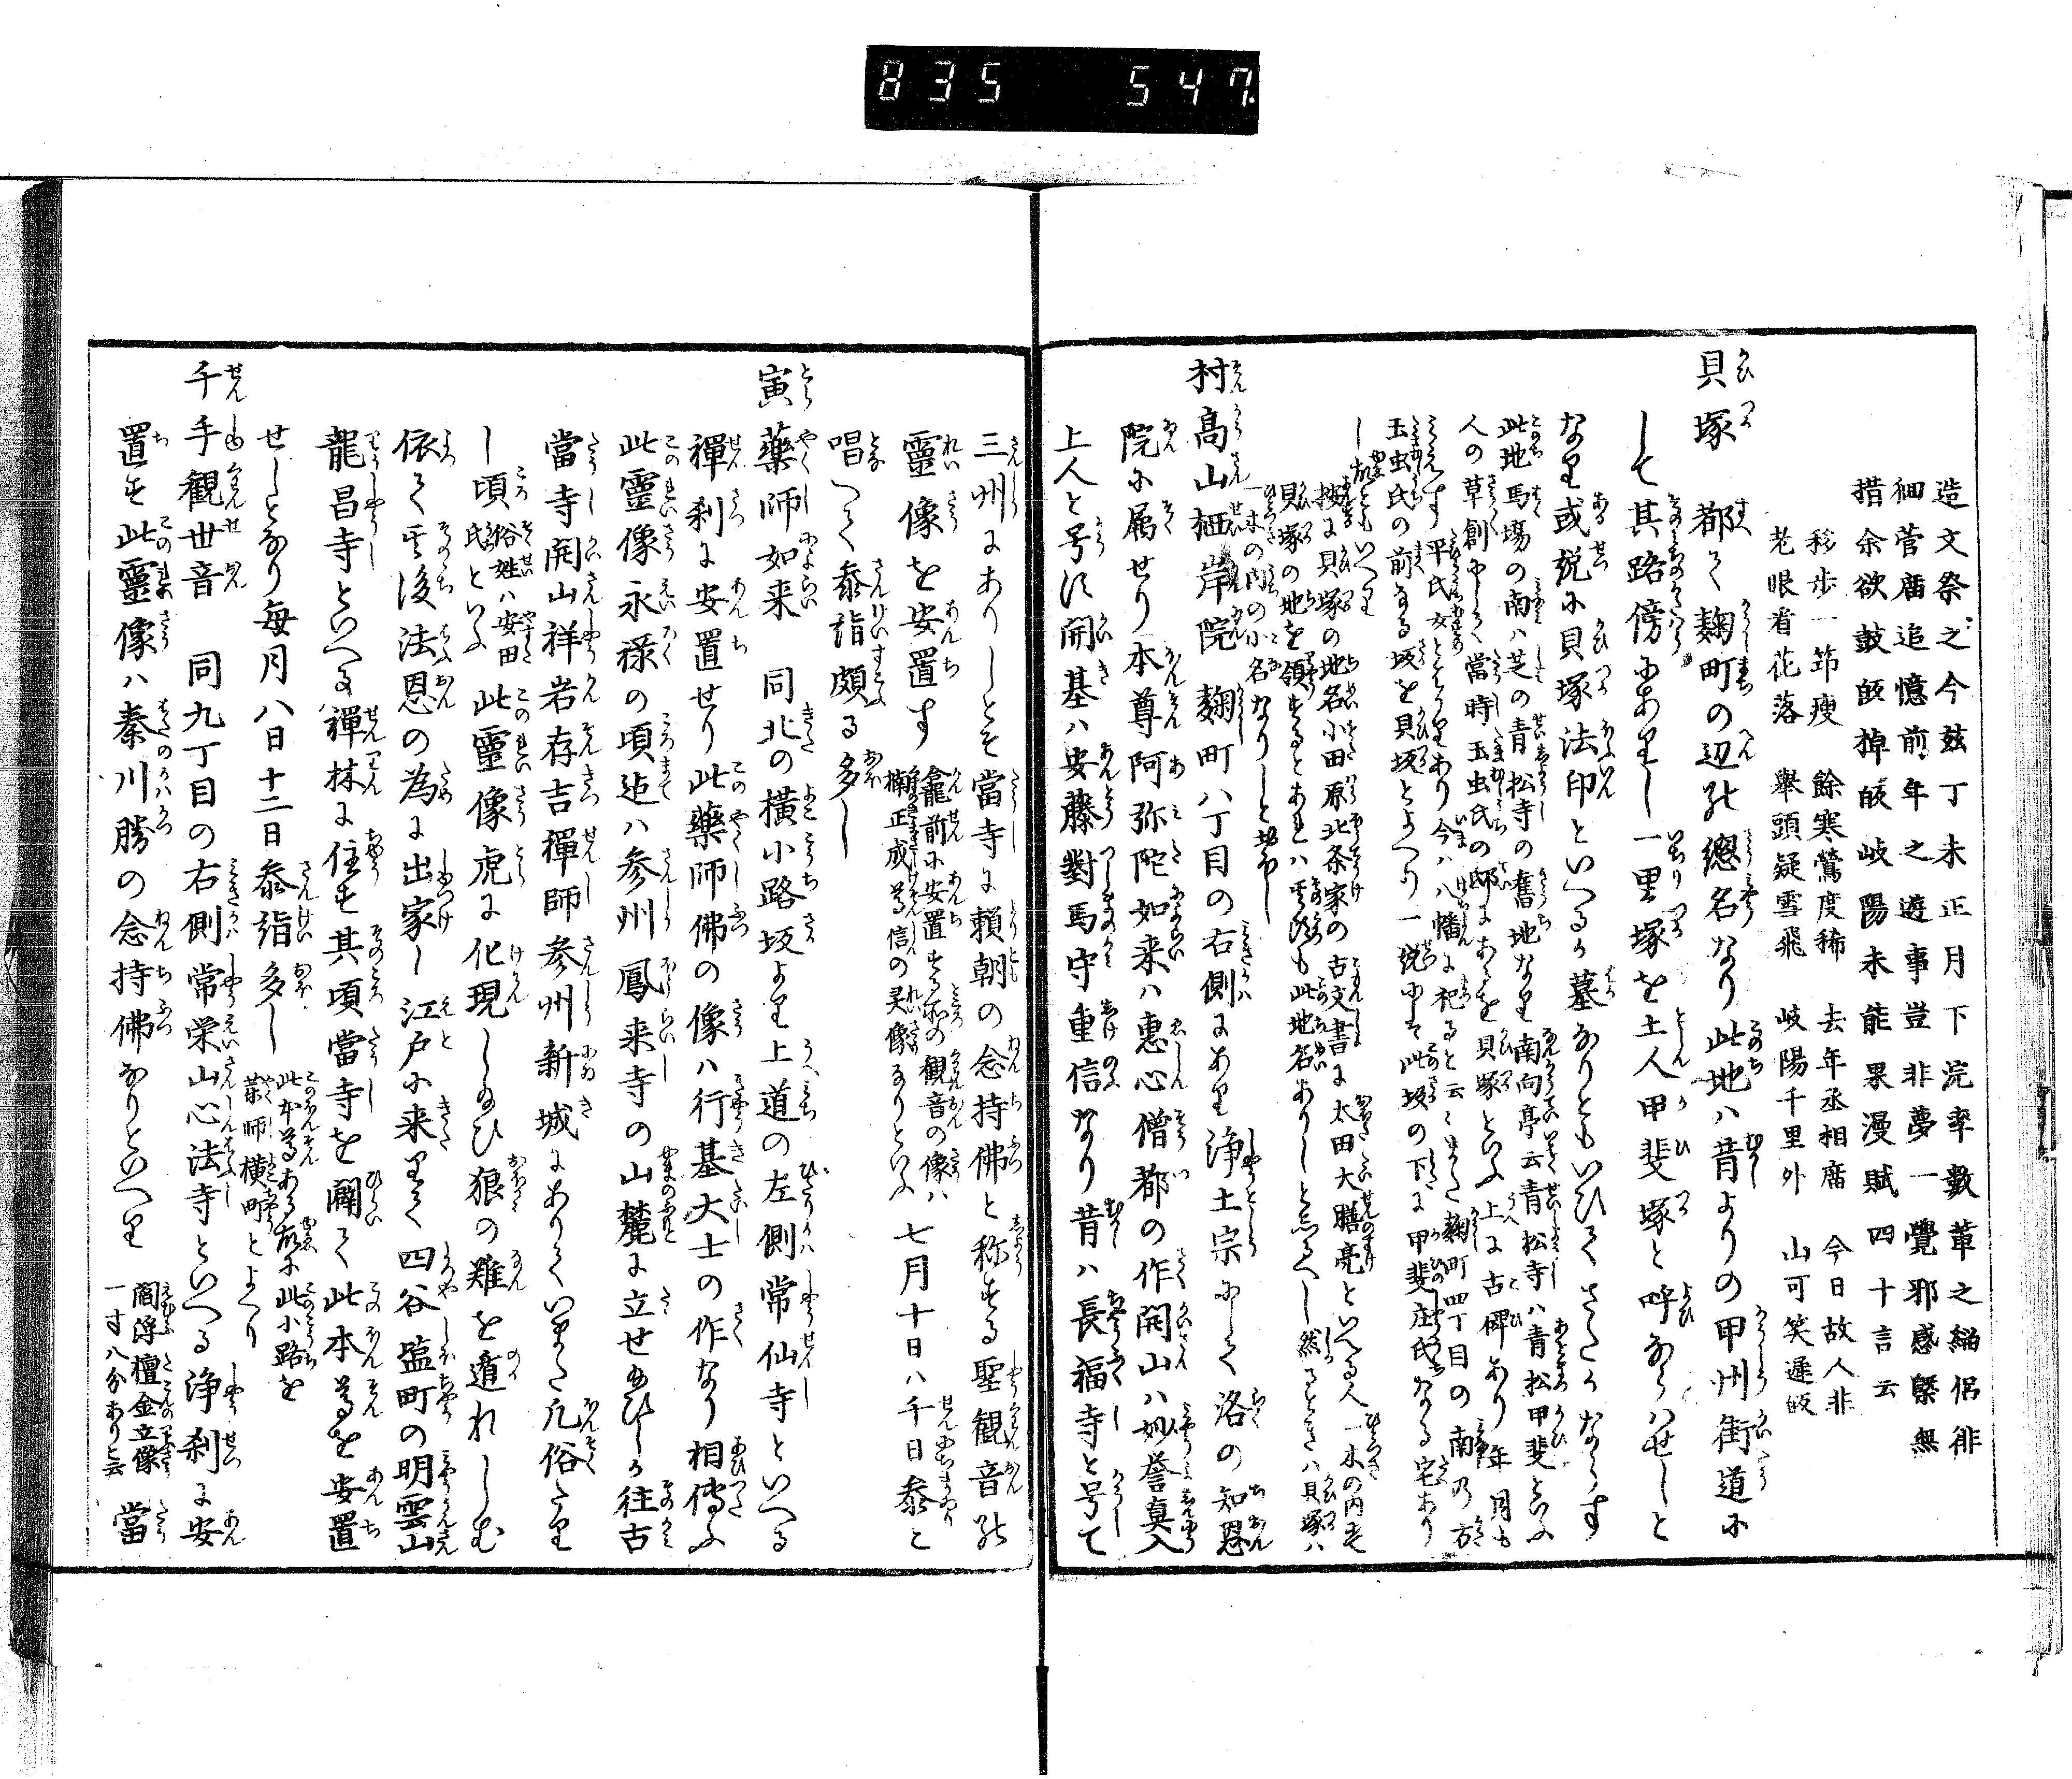 835 547
造文祭之今玆丁未正月下浣率數輩之緇侶徘
徊菅庿追憶前年之遊事豈非夢一覺邪感槩無
措余欲鼓皈掉皈岐陽未能果漫賦四十言云
移歩一笻瘦 餘寒鶯度稀 去年丞相席 今日故人非
老眼看花落 舉頭疑雪飛 岐陽千里外 山可笑遲皈
貝塚 都て麹町の辺の總名なり此地ハ昔よりの甲州街道に
して其路傍にありし一里塚を土人甲斐塚と呼ならハせしと
なり或説に貝塚法印といへるか墓なりともいひてさたかならす
此地馬場の南ハ芝の青松寺の舊地なり南向亭云青松寺ハ青松甲斐といふ
人の草創にして當時玉虫氏の邸にあるを貝塚といふ上に古碑あり年月も
みえす平氏女とはかりあり今ハ八幡に祀ると云々また麹町四丁目の南の方
玉虫氏の前なる坂を貝坂とよへり一説にハ此坂の下に甲斐庄氏なる宅あり
し故ともいへり
按に貝塚の地名小田原北条家の古文書に太田大膳亮といへる人一木の内
貝塚の地を領するとあれハ其頃も此地名ありしとしるへし然るときハ貝塚ハ
一木の内の小名なりしと知へし
村髙山栖岸院 麹町八丁目の右側にあり浄土宗にして洛の知恩
院に属せり本尊阿弥陀如来ハ惠心僧都の作開山ハ妙誉真入
上人と号す開基ハ安藤對馬守重信なり昔ハ長福寺と号て
三州にありしとそ當寺に頼朝の念持佛と称する聖観音の
靈像を安置す 龕前に安置する所の観音の像ハ
楠正成尊信の灵像なりといふ 七月十日ハ千日参と
唱へて参詣頗る多し
寅藥師如来 同北の横小路坂より上道の左側常仙寺といへる
禪刹に安置せり此藥師佛の像ハ行基大士の作なり相傳ふ
此靈像永禄の頃迄ハ参州鳳来寺の山麓に立せ給ひしか往古
當寺開山祥岩存吉禪師参州新城にありていまた凡俗たり
し頃 俗姓ハ安田
氏といふ 此靈像虎に化現し給ひ狼の難を遁れしむ
依て其後法恩の為に出家し江戸に来りて四谷塩町の明雲山
龍昌寺といへる禪林に住す其頃當寺を開て此本尊を安置
せしとなり毎月八日十二日参詣多し 此本尊ある故に此小路を
薬師横町とよへり
千手観世音 同九丁目の右側常栄山心法寺といへる浄刹に安
置す此靈像ハ秦川勝の念持佛なりといへり 閻浮檀金立像
一寸八分ありと云 當